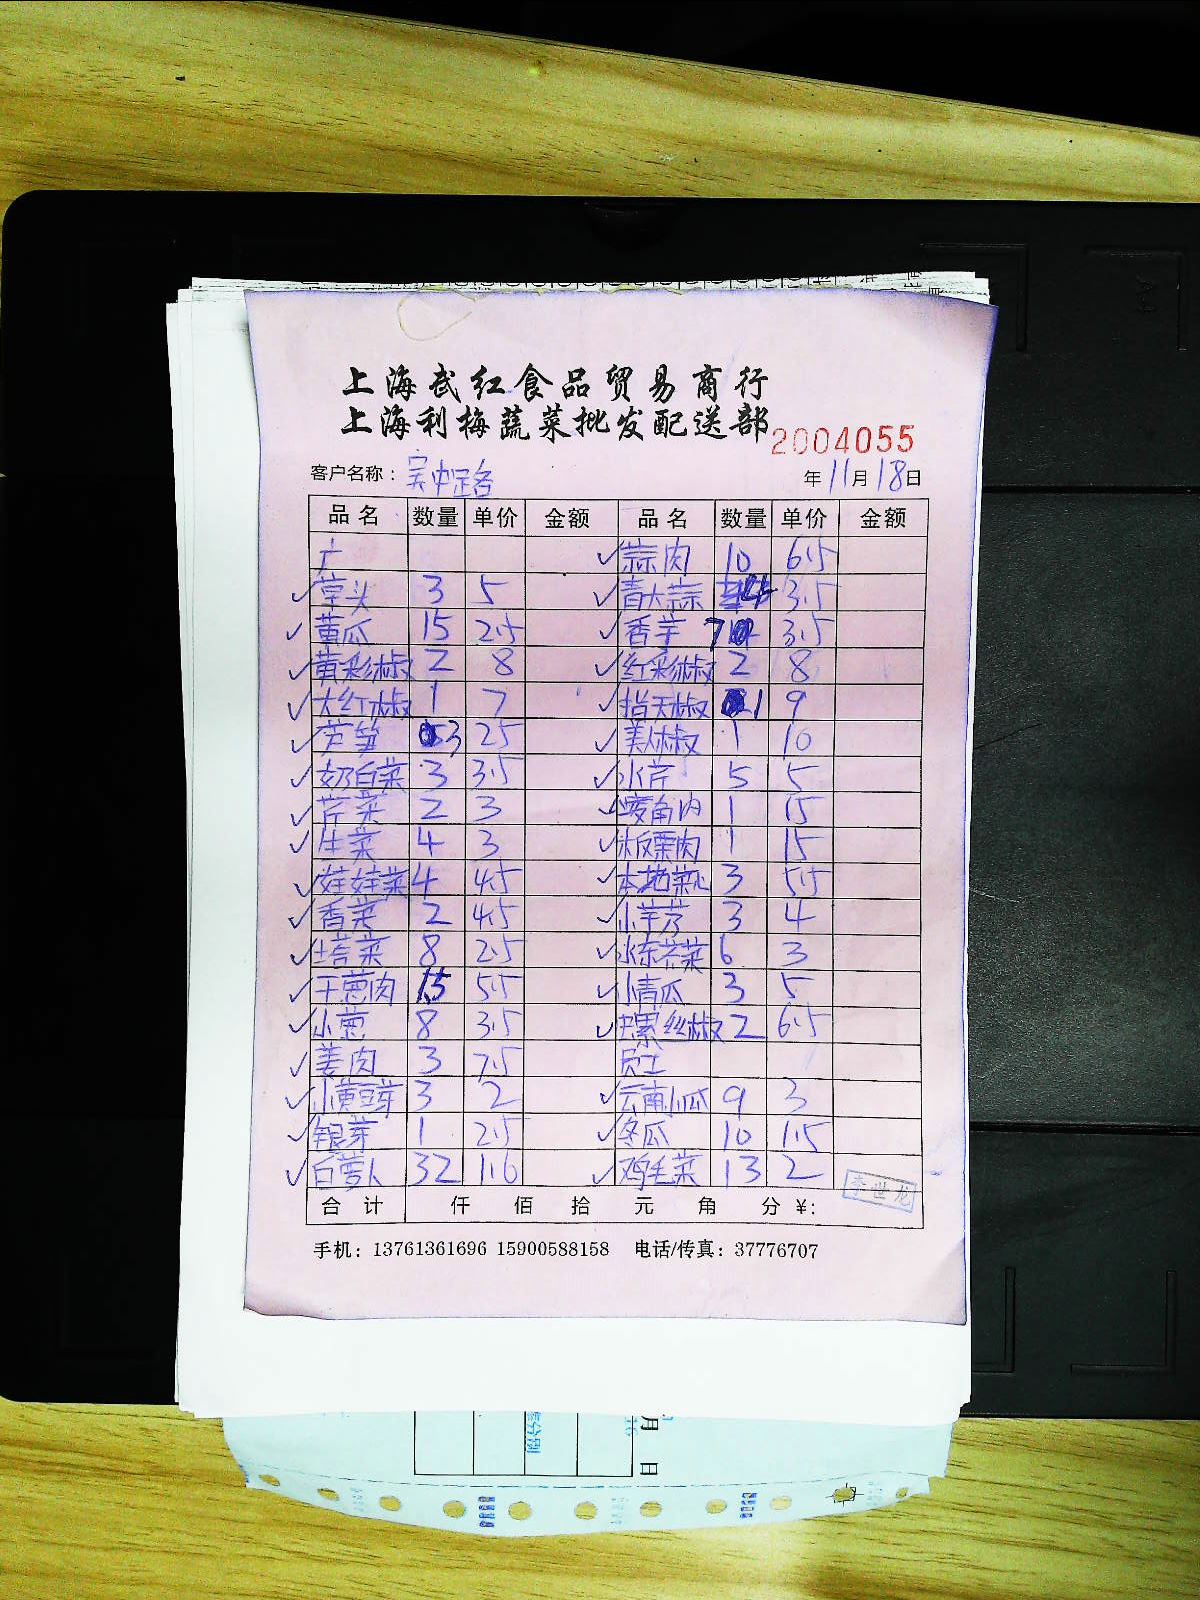 上海武红食品贸易商行
上海利梅蔬菜批发配送部
2004055
客户名称：吴中路 年11月18日
品名 数量 单价 金额 品名 数量 单价 金额
蒜肉 10 6.5
草头 3 5 青大蒜 4 3.5
黄瓜 15 2.5 香芋 7 3.5
黄彩椒 2 8 红彩椒 2 8
大红椒 1 7 指天椒 1 9
芦笋 3 25 美人椒 1 10
奶白菜 3 3.5 水芹 5 5
芹菜 2 3 菱角肉 1 15
生菜 4 3 板栗肉 1 15
娃娃菜 4 4.5 本地菜心 3 5.5
香菜 2 4.5 小芋艿 3 4
塔菜 8 2.5 水东芥菜 6 3
干葱肉 15 5.5 小青瓜 3 5
小葱 8 3.5 螺丝椒 2 6.5
姜肉 3 7.5 员工
小黄豆芽 3 2 云南小瓜 9 3
银芽 1 2.5 冬瓜 10 1.5
白萝卜 32 1.6 鸡毛菜 13 2
李世龙
合计 仟 佰 拾 元 角 分 ¥:
手机：13761361696 15900588158 电话/传真：37776707
月 日